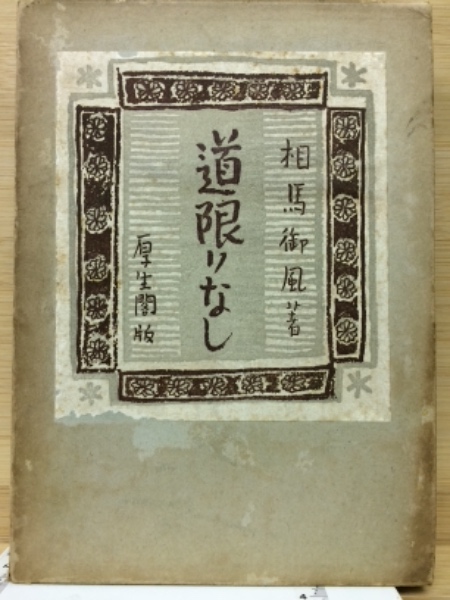 相馬御風著
道限りなし
厚生閣版